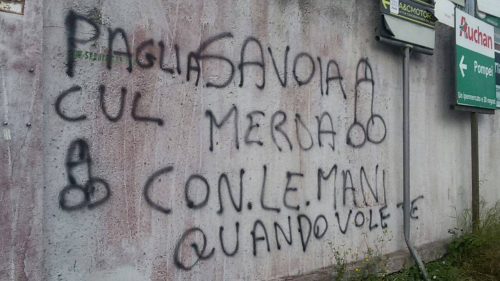 PAGLIA SAVOIA
CUL MERDA
CON.LE.MANI
QUANDO VOLETE
A&C MOTOR
Auchan
Pompei